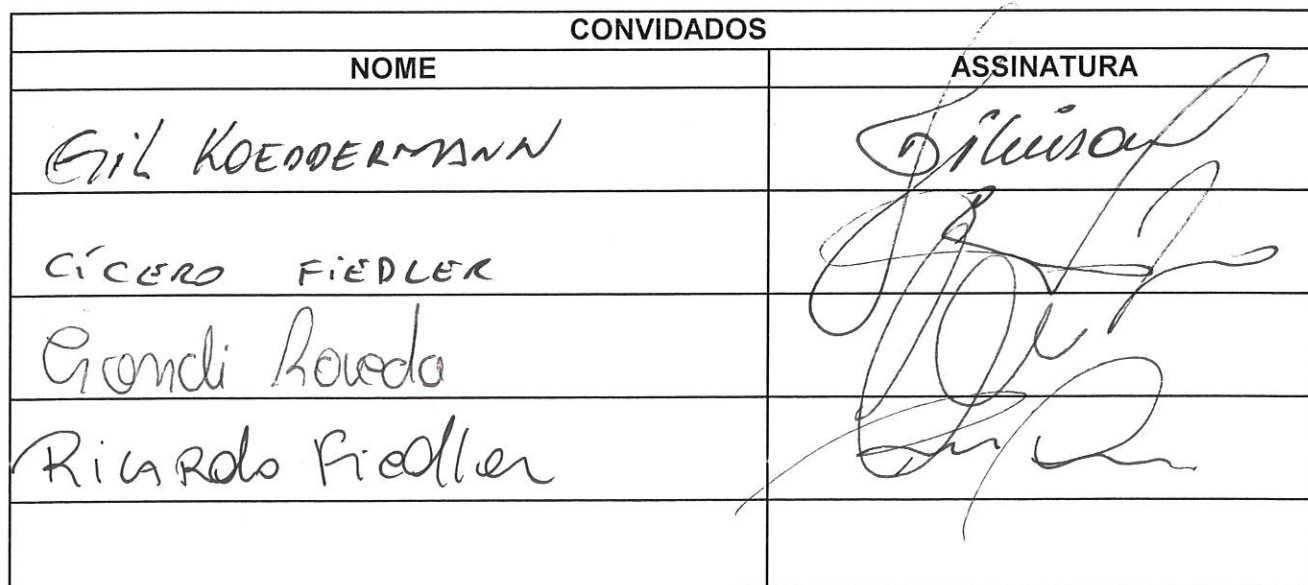 CONVIDADOS
NOME ASSINATURA
Gil KOEDDERMANN
CÍCERO FIEDLER
Gandi Roveda
Ricardo Fiedler